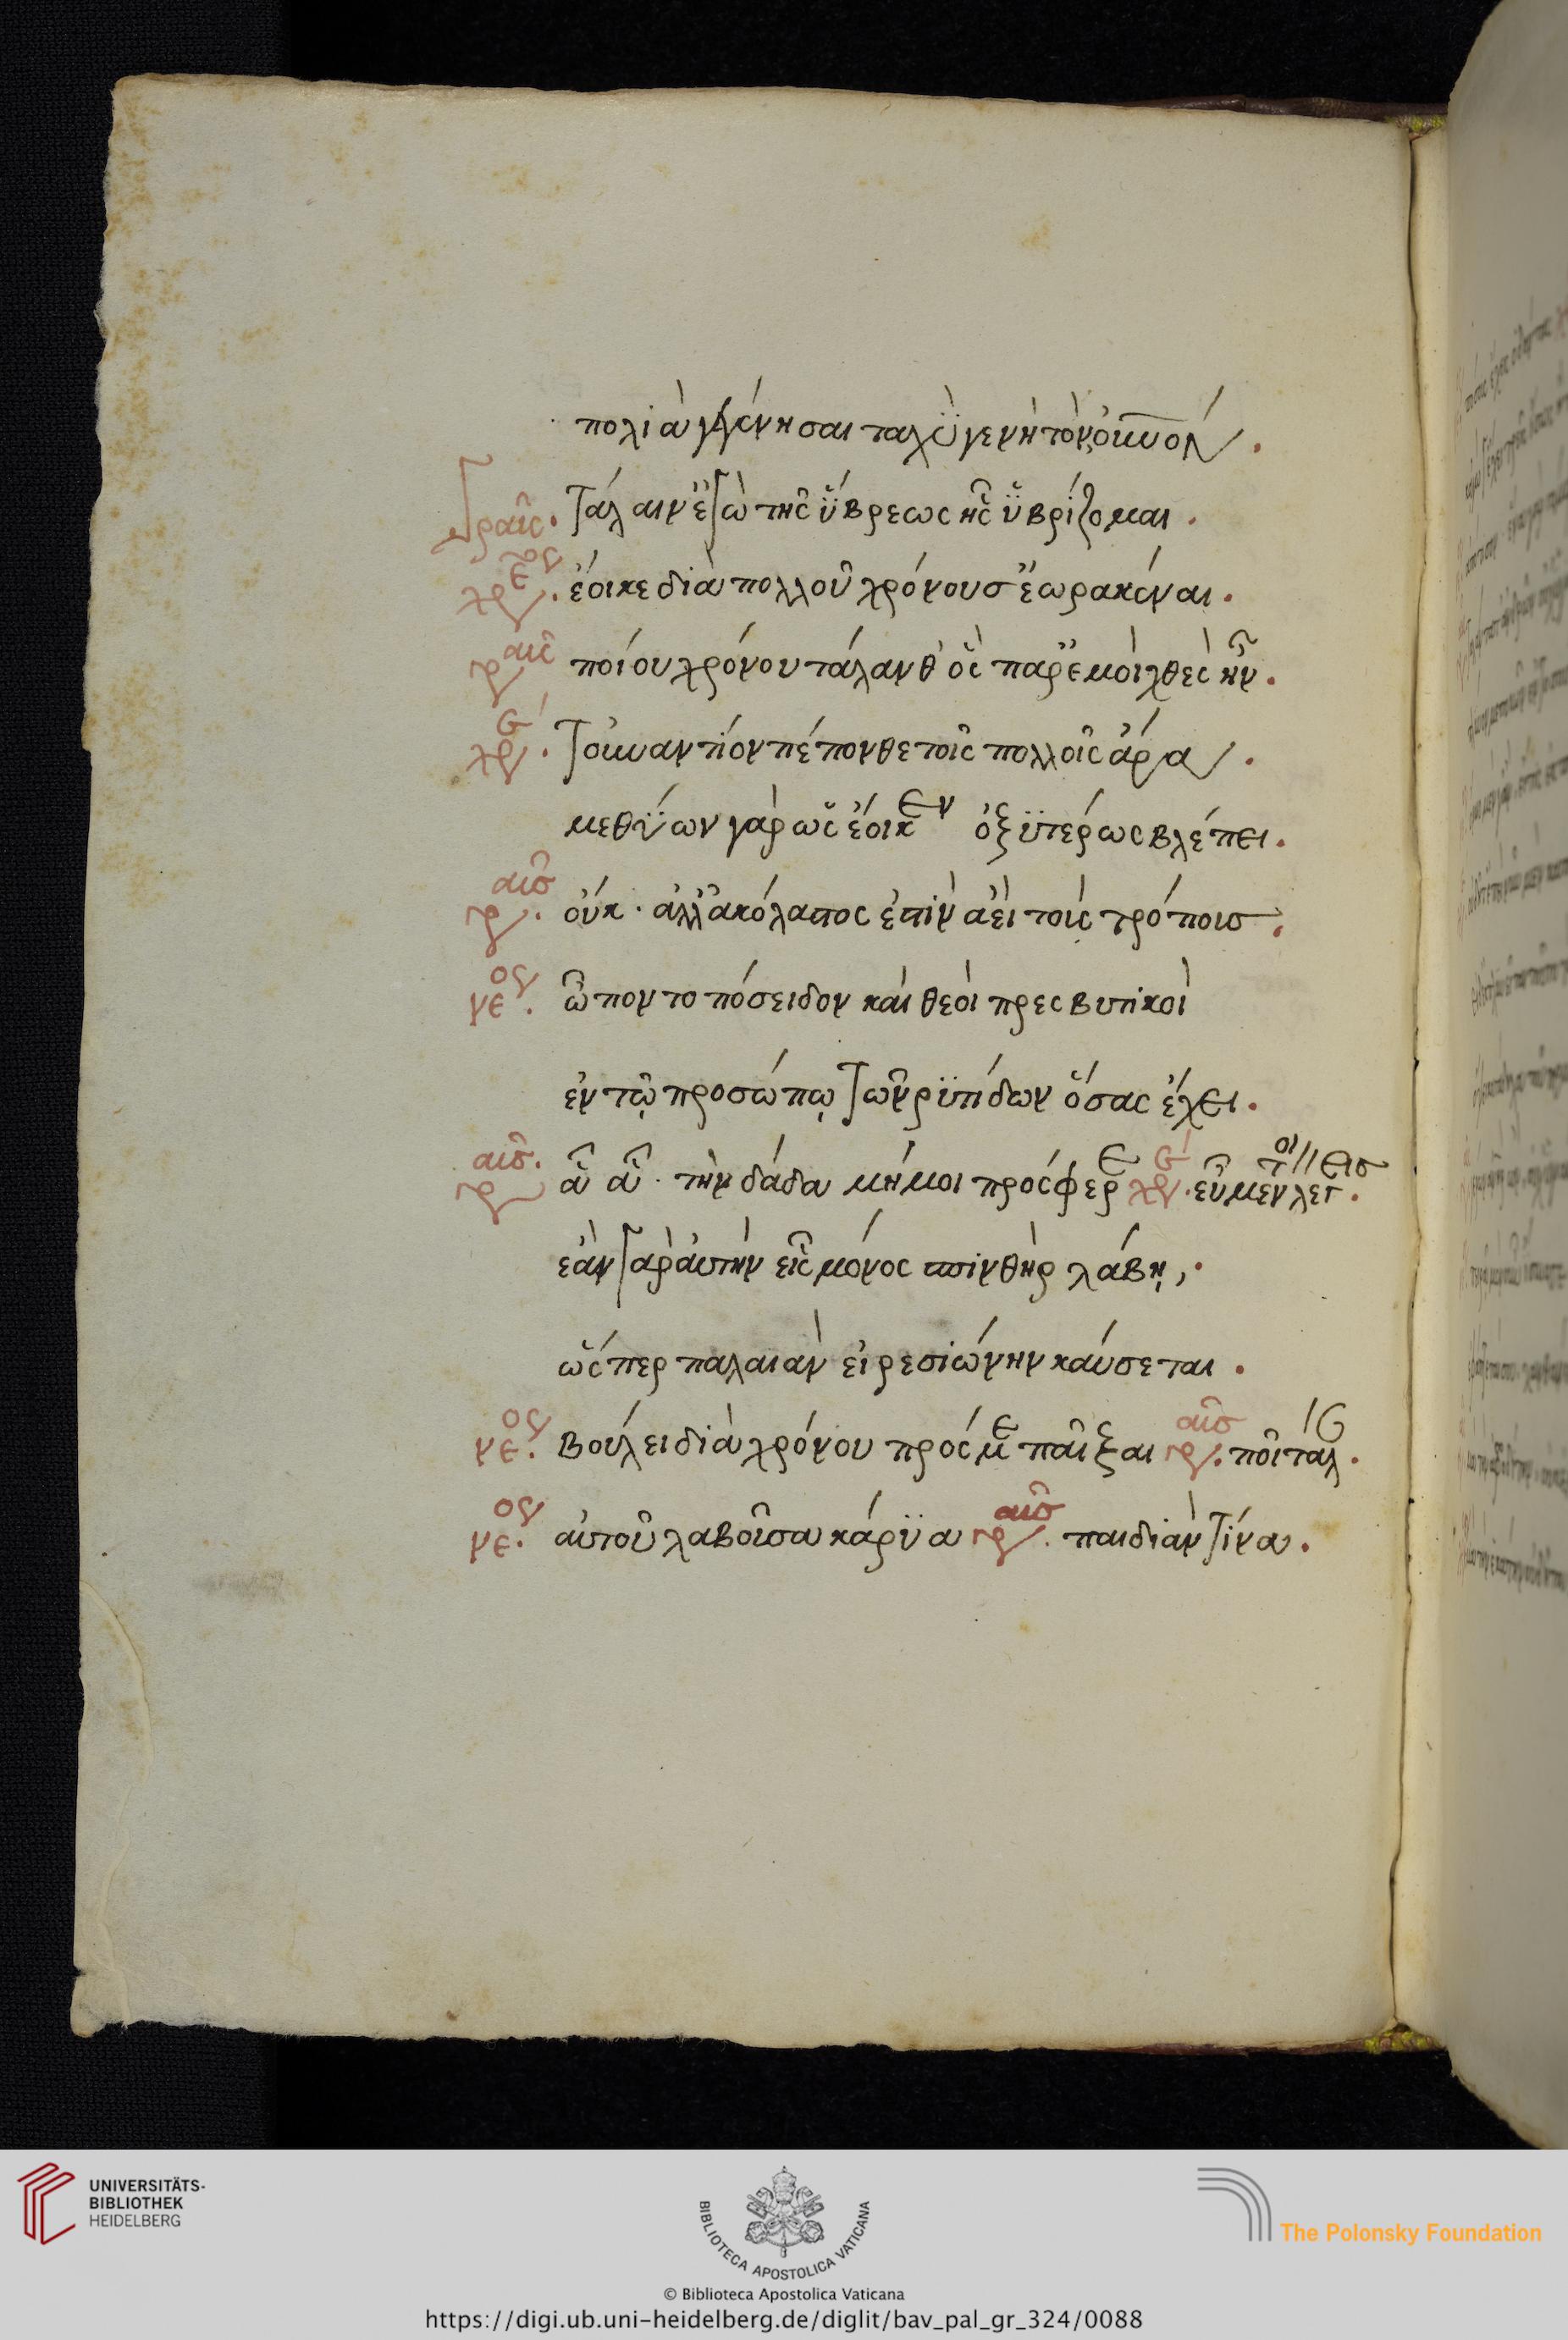 πολιὰ γεγένησαι ταχὺ γε νὴ τὸν οὐνον.
γραῦς. τάλαιν' ἐγὼ τῆς ὕβρεως ἧς ὑβρίζομαι.
χρ. ἔοικε διὰ πολλοῦ χρόνου σ' ἑωρακέναι.
γραῦς ποίου χρόνου τάλανθ' ὃς παρ' ἐμοὶ χθὲς ἦν.
χρε. τοὐναντίον πέπονθε τοῖς πολλοῖς ἄρα.
μεθύων γὰρ ὡς ἔοικεν ὀξυτέρως βλέπει.
γραῦς. οὐκ· ἀλλ' ἀκόλαστος ἐστὶν ἀεὶ τοῖς τρόποις.
νεος. ὦ ποντοπόσειδον καὶ θεοὶ πρεσβυτικοὶ
ἐν τῷ προσώπῳ τῶν ῥυτίδων ὅσας ἔχει.
γραῦς. ἆ ἆ. τὴν δάδα μή μοι πρόσφερε χρε. εὖ μέντοι λέγεις.
ἐὰν γὰρ αὐτὴν εἷς μόνος σπινθὴρ λάβῃ,.
ὥσπερ παλαιὰν εἰρεσιώνην καύσεται.
νεος. βούλει διὰ χρόνου πρός με παῖξαι γραῦς. ποῖ ταλ.
νεος. αὐτοῦ λαβοῦσα κάρυα γραῦς. παιδιὰν τίνα.
UNIVERSITÄTS-
BIBLIOTHEK
HEIDELBERG
BIBLIOTECA APOSTOLICA VATICANA
The Polonsky Foundation
© Biblioteca Apostolica Vaticana
https://digi.ub.uni-heidelberg.de/diglit/bav_pal_gr_324/0088